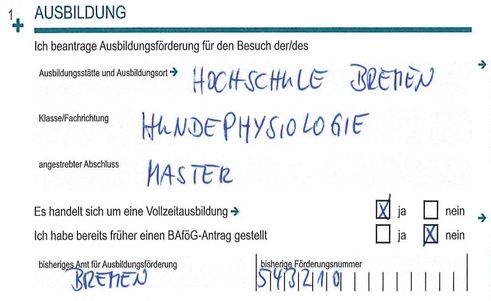 1 AUSBILDUNG
Ich beantrage Ausbildungsförderung für den Besuch der/des
Ausbildungsstätte und Ausbildungsort → HOCHSCHULE BREMEN
Klasse/Fachrichtung HUNDEPHYSIOLOGIE
angestrebter Abschluss MASTER
Es handelt sich um eine Vollzeitausbildung → X ja nein
Ich habe bereits früher einen BAföG-Antrag gestellt ja X nein
bisheriges Amt für Ausbildungsförderung bisherige Förderungsnummer
BREMEN 543210